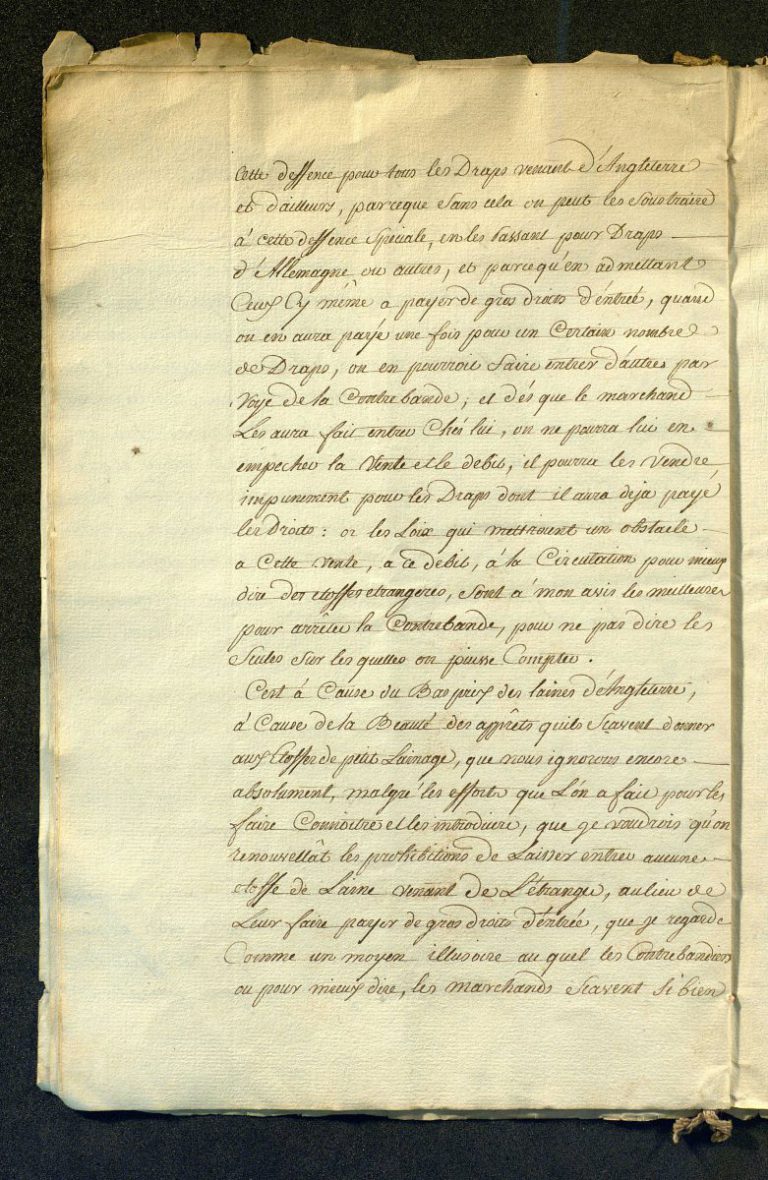 Cette deffence pour tous les Draps venant d'Angleterre
et d'ailleurs, parceque sans cela on peut les soustraire
à cette deffence speciale, en les passant pour Draps
d'Allemagne ou autres, et parcequ'en admettant
Ceux Cy même a payer de gros droits d'éntrée, quand
on en aura payé une fois pour un Certain nombre
de Draps, on en pourroit faire entrer d'áutres par
Voye de la Contrebande; et dés que le marchand
Les aura fait entrer Chés lui, on ne pourra lui en
empecher la Vente et le debit, il pourra les Vendre
impunement pour les Draps dont il aura deja payé
les Droits: or les Loix qui mettroient un obstacle
a Cette Vente, a ce debit, á la Circulation pour mieux
dire des etoffes etrangeres, sont á mon avis les meilleures
pour arrêter la Contrebande, pour ne pas dire les
seules sur les quelles on puisse Compter.
C'est á Cause du Bas prix des laines d'Angleterre,
á Cause de la Beauté des apprêts quils sçavent donner
aux Etoffes de petit Lainage, que nous ignorons encore
absolument, malgré les efforts que L'ón a fait pour les
faire Connoitre et les introduire, que je voudrois qu'on
renouvellât les prohibitions de Laisser entrer aucune
étoffe de Laine venant de L'étranger, au lieu de
Leur faire payer de gros droits d'éntrée, que je regarde
Comme un moyen illusoire au quel les Contrebandiers
ou pour mieux dire, les marchands sçavent si bien